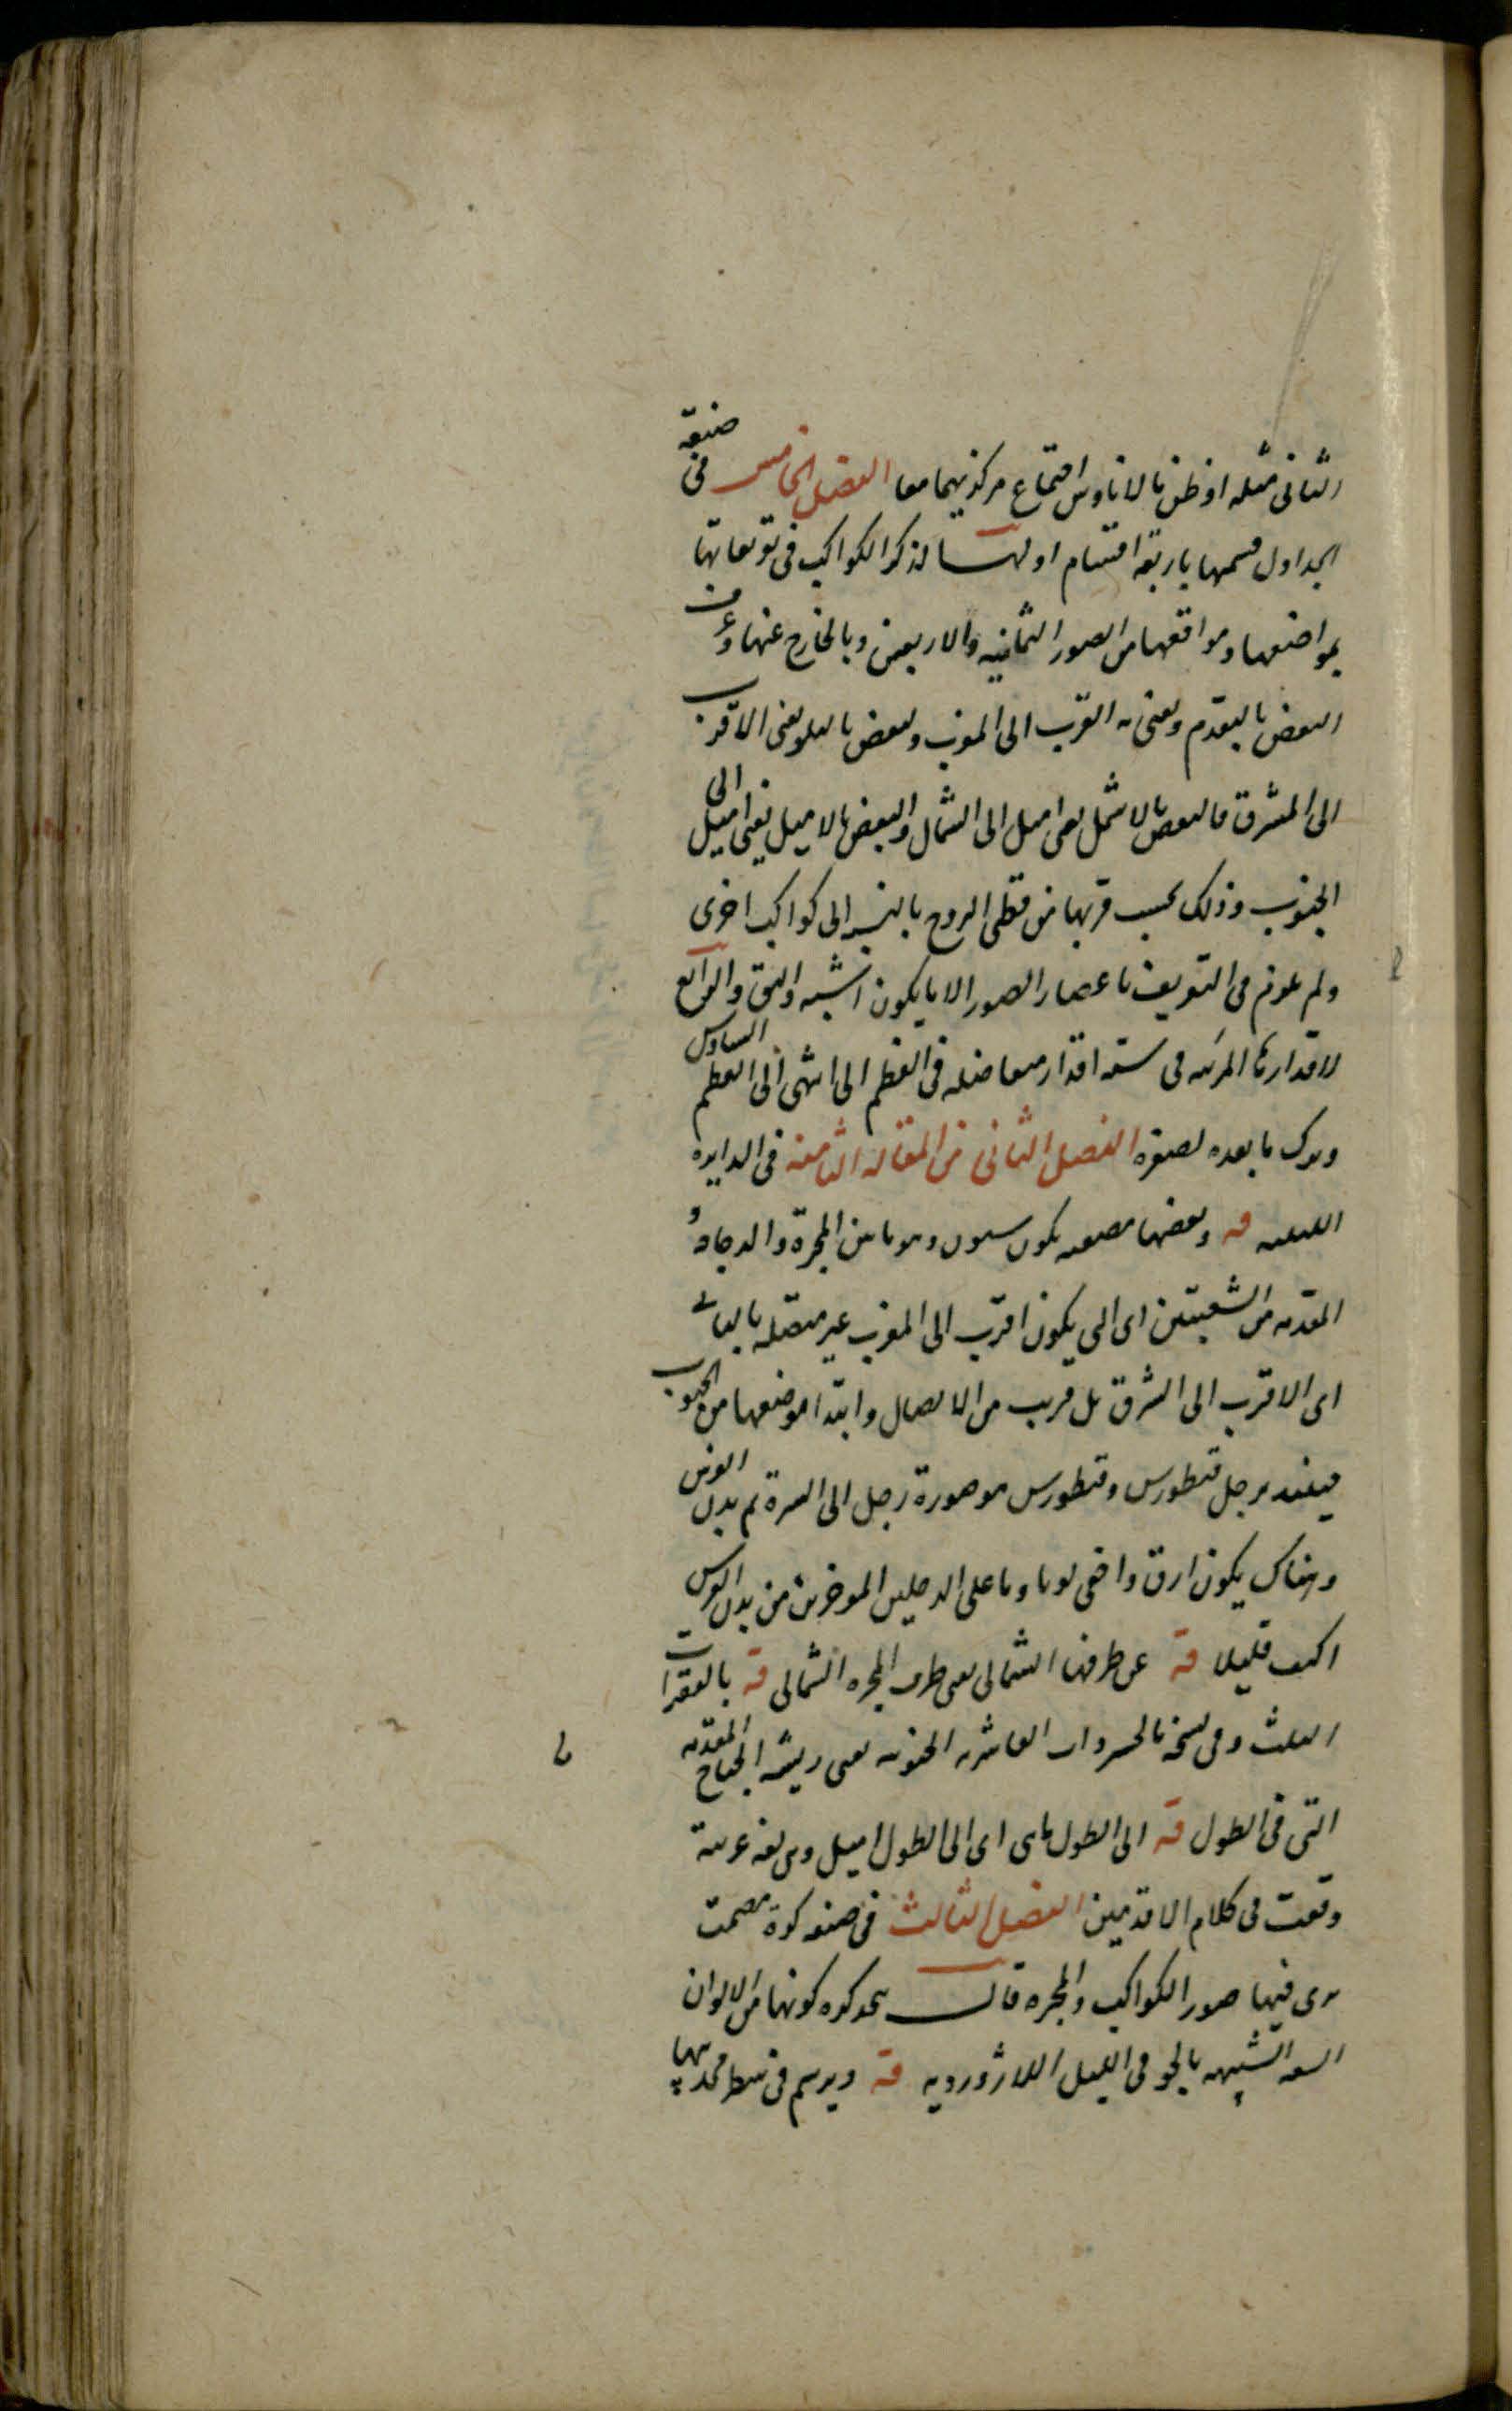 الثانى مثله او ظن بالاناوس اجتماع مركزيهما معا الفصل الخامس فى صنعة
الجداول قسمها باربعة اقسام اولها لذكر الكواكب فى توقعاتها
بمواضعها ومواقعها من الصور الثمانيه والاربعين وبالخارج عنها وعرف
البعض بالتقدم ويعنى به القرب الى المغرب وبعض بالتلو يعنى الاقرب
الى المشرق فالبعض بالاشمل يعنى اميل الى الشمال والبعض بالاميل يعنى اميل الى
الجنوب وذلك بحسب قربها من قطبى البروج بالنسبه الى كواكب اخرى
ولم فى التعريف الصور الا ما يكون اشبه واليق والرابع
لاقدارها المرتبه فى سته اقدار متفاضله فى العظم الى انتهى الى العظم السادس
وترك ما بعده لصغره الفصل الثانى من المقاله الثامنه فى الدايرة
اللبنيه قه وبعضها يكون وهو ما بين المجرة والدجاجة و
المقدمه من الشعبتين اى التى يكون اقرب الى المغرب غير متصله بالتى
اى الاقرب الى المشرق بل قريب من الاتصال وابتدا موضعها من الجنوب
فيبتدء برجل قنطورس وقنطورس هو صورة رجل الى السرة ثم بدن الفرس
وهناك يكون ارق واخفى لونا وما على الرجلين الموخرتين من بدن الفرس
اكثف قليلا قه عن طرفها الشمالى يعنى طرف المجره الشمالى قه بالفقرات
الثلث وفى نسخه العاشره الجنوبيه يعنى ريشه الجناح المقدمه
التى فى الطول قه الى الطول ماى اى الى الطول اميل وهى لغه غريبة
وقعت فى كلام الاقدمين الفصل الثالث فى صنعه كرة مصمت
يرى فيها صور الكواكب والمجره قال يتخذ كره لونها من الالوان
الشبيهه بالجو فى الليل اللازورديه قه ويرسم فى سطر محدبها